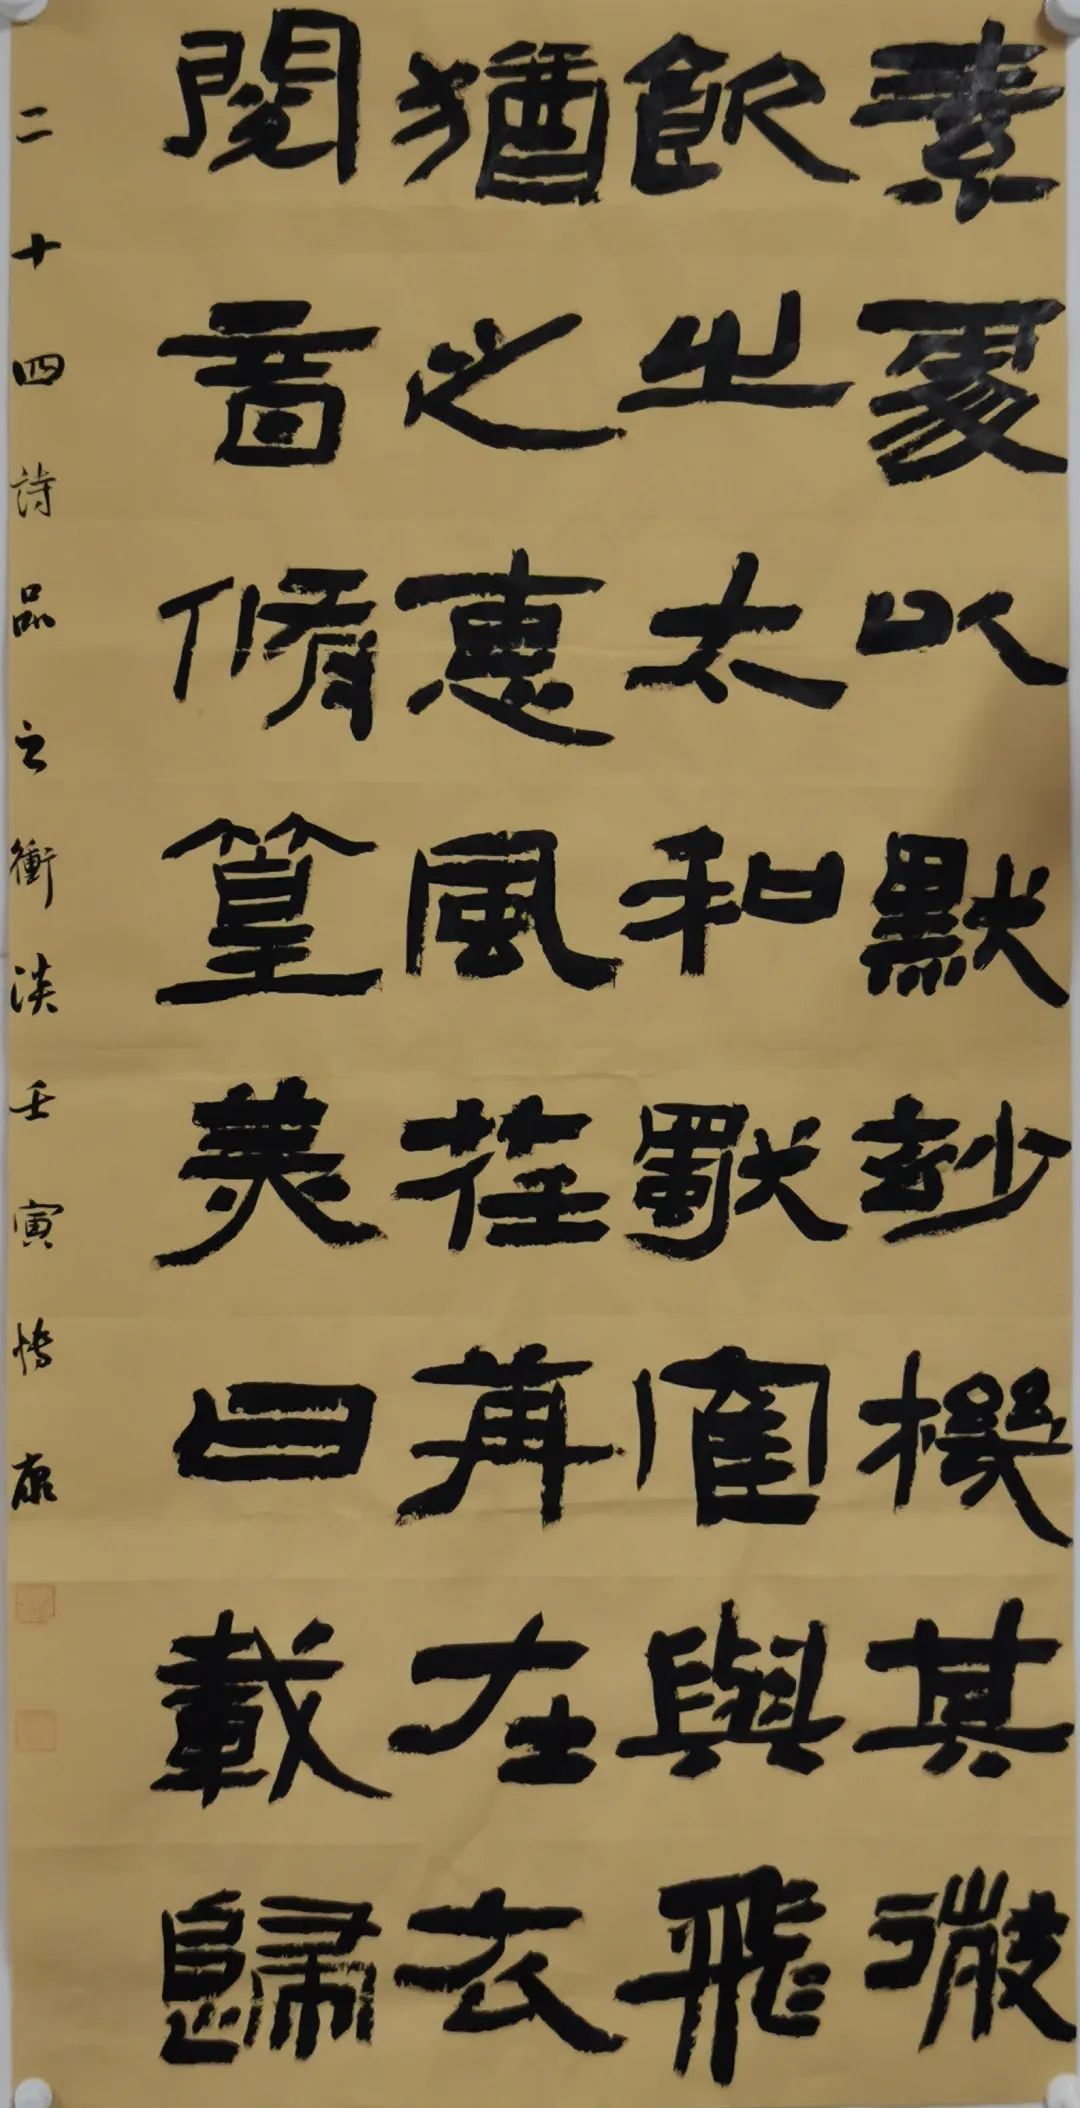 素處以默妙機其微
飲之太和獨鶴與飛
猶之惠風荏苒在衣
閱音脩篁美曰載歸
二十四詩品之衝淡壬寅